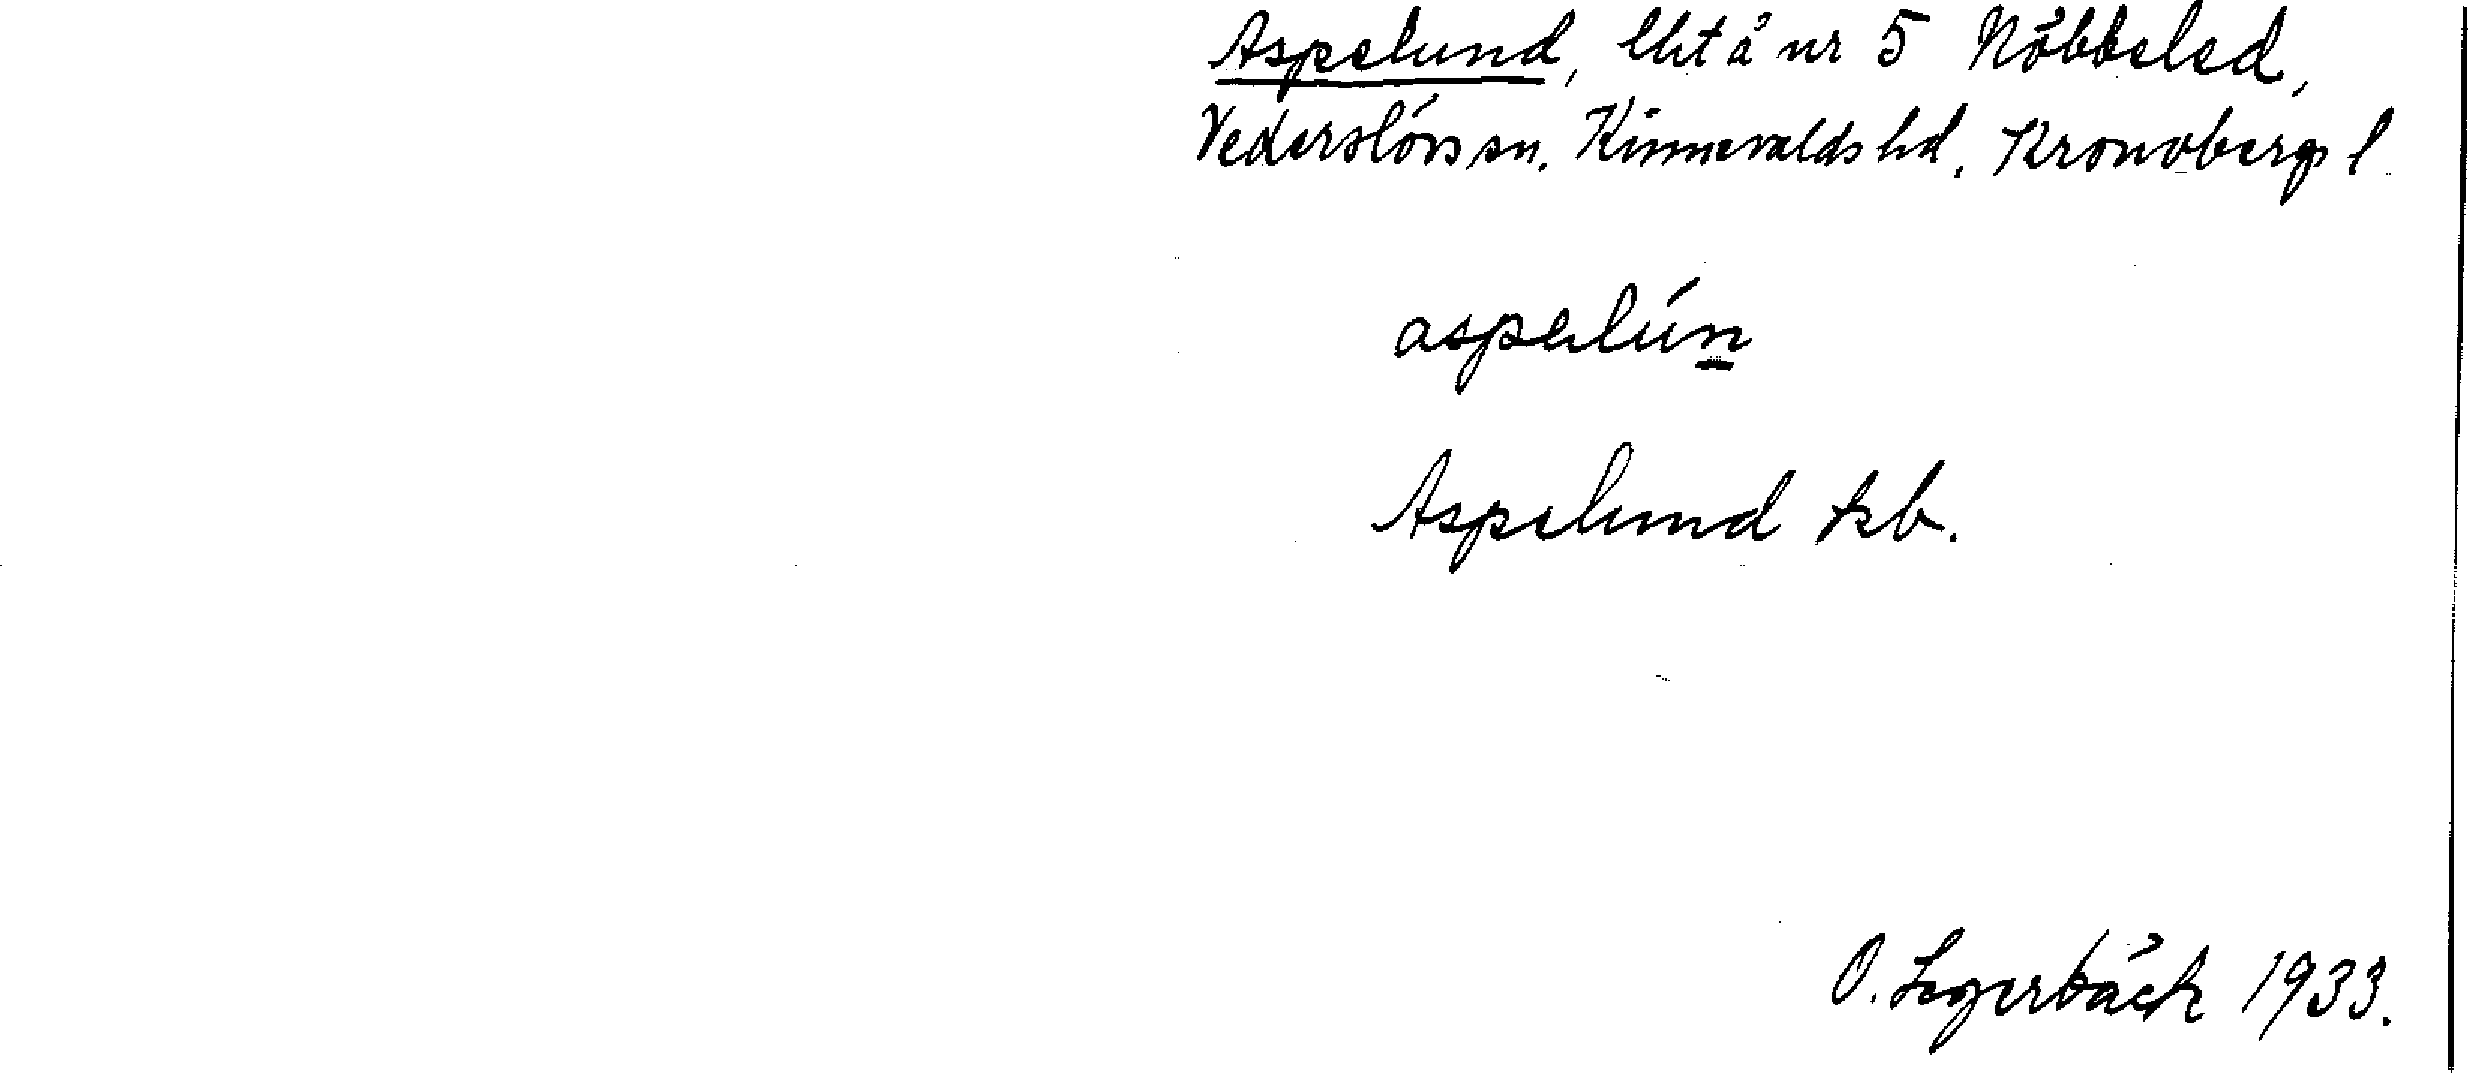 Aspelund, lht å nr 5 Nöbbeled,
Vederslövs sn. Kinnevalds hd, Kronobergs l.
aspelún
Aspelund kb.
O. Legerbäck 1933.